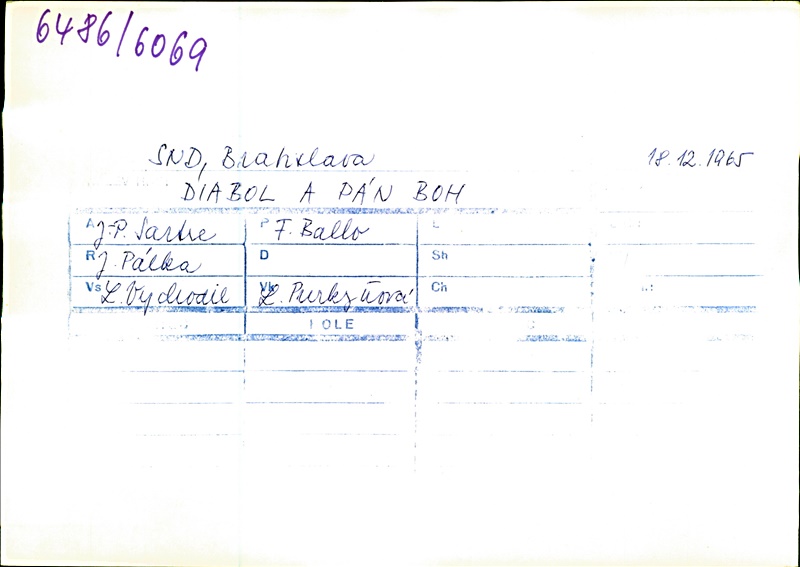 6486/6069
SND, Bratislava 18.12.1965
DIABOL A PÁN BOH
A J.-P. Sartre P F. Ballo L
R J. Pálka D Sh
Vs L. Vychodil Vk L. Purkyňová Ch